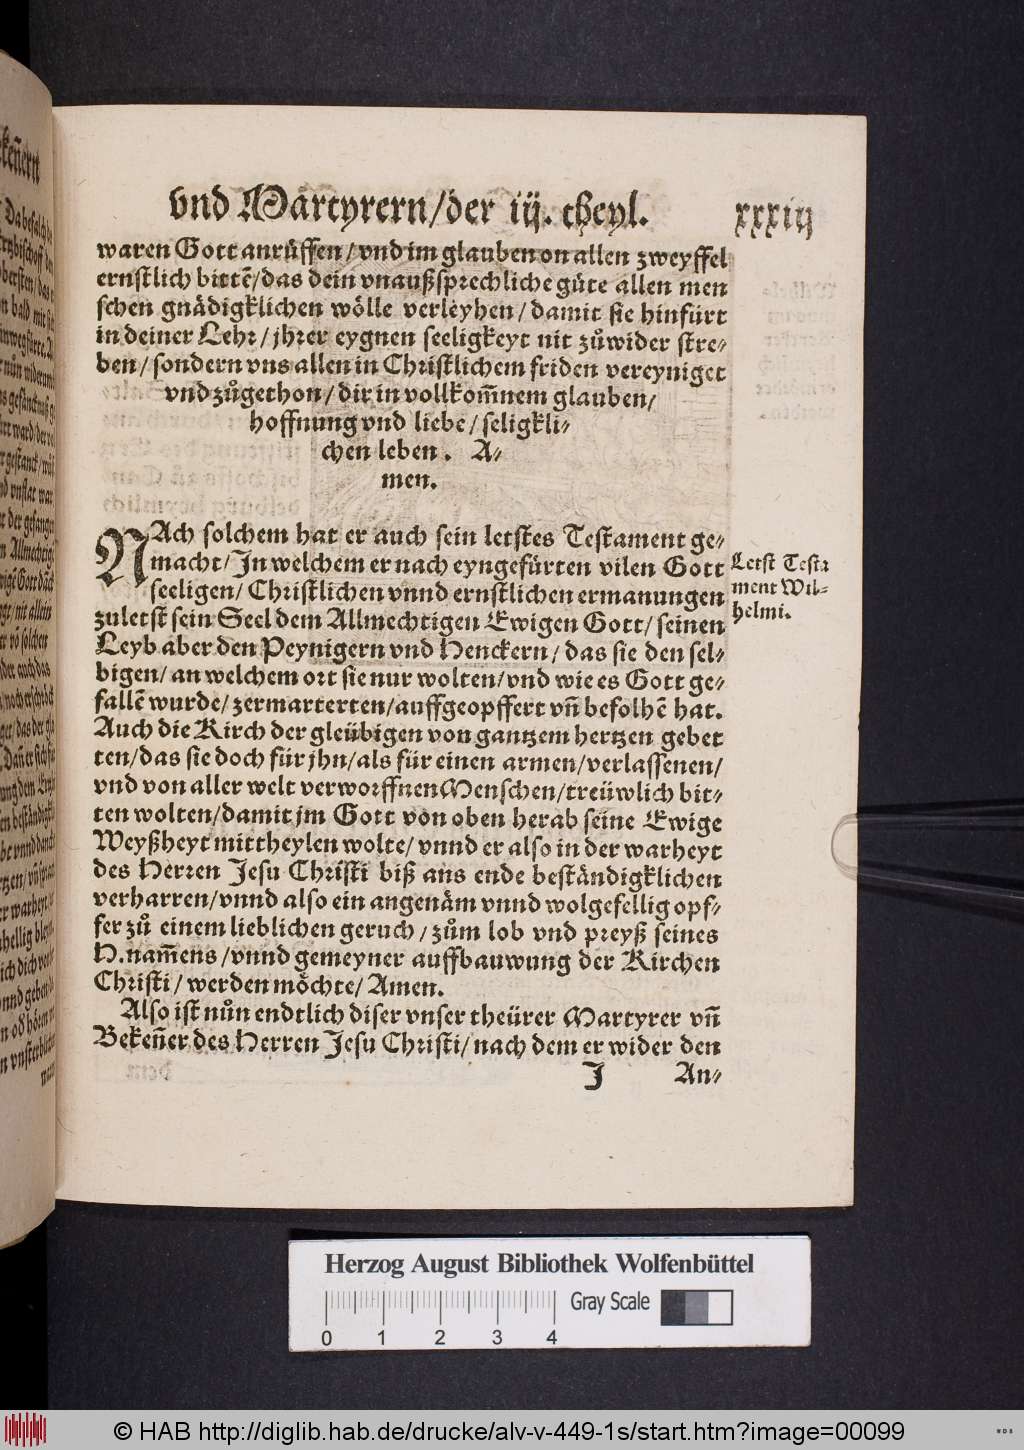 vnd Martyrern/der iij. theyl. xxxiij
waren Gott anrůffen/vnd im glauben on allen zweyffel
ernstlich bittẽ/das dein vnaußsprechliche güte allen men
schen gnädigklichen wölle verleyhen/damit sie hinfürt
in deiner Lehr/jhrer eygnen seeligkeyt nit zůwider stre-
ben/sondern vns allen in Christlichem friden vereyniget
vnd zůgethon/dir in vollkom̃nem glauben/
hoffnung vnd liebe/seligkli-
chen leben. A-
men.
NAch solchem hat er auch sein letstes Testament ge-
macht/In welchem er nach eyngefürten vilen Gott
seeligen/Christlichen vnnd ernstlichen ermanungen
zuletst sein Seel dem Allmechtigen Ewigen Gott/seinen
Leyb aber den Peynigern vnd Henckern/das sie den sel-
bigen/an welchem ort sie nur wolten/vnd wie es Gott ge-
fallẽ wurde/zermarterten/auffgeopffert vñ befolhẽ hat.
Auch die Kirch der gleübigen von gantzem hertzen gebet
ten/das sie doch für jhn/als für einen armen/verlassenen/
vnd von aller welt verworffnen Menschen/treüwlich bit-
ten wolten/damit jm Gott von oben herab seine Ewige
Weyßheyt mittheylen wolte/vnnd er also in der warheyt
des Herren Jesu Christi biß ans ende beständigklichen
verharren/vnnd also ein angenäm vnnd wolgefellig opf-
fer zů einem lieblichen geruch/zům lob vnd preyß seines
H. nam̃ens/vnnd gemeyner auffbauwung der Kirchen
Christi/werden möchte/Amen.
Also ist nůn endtlich diser vnser theürer Martyrer vñ
Bekeñer des Herren Jesu Christi/nach dem er wider den
J An-
Letst Testa
ment Wil-
helmi.
Herzog August Bibliothek Wolfenbüttel
Gray Scale
0 1 2 3 4
© HAB http://diglib.hab.de/drucke/alv-v-449-1s/start.htm?image=00099